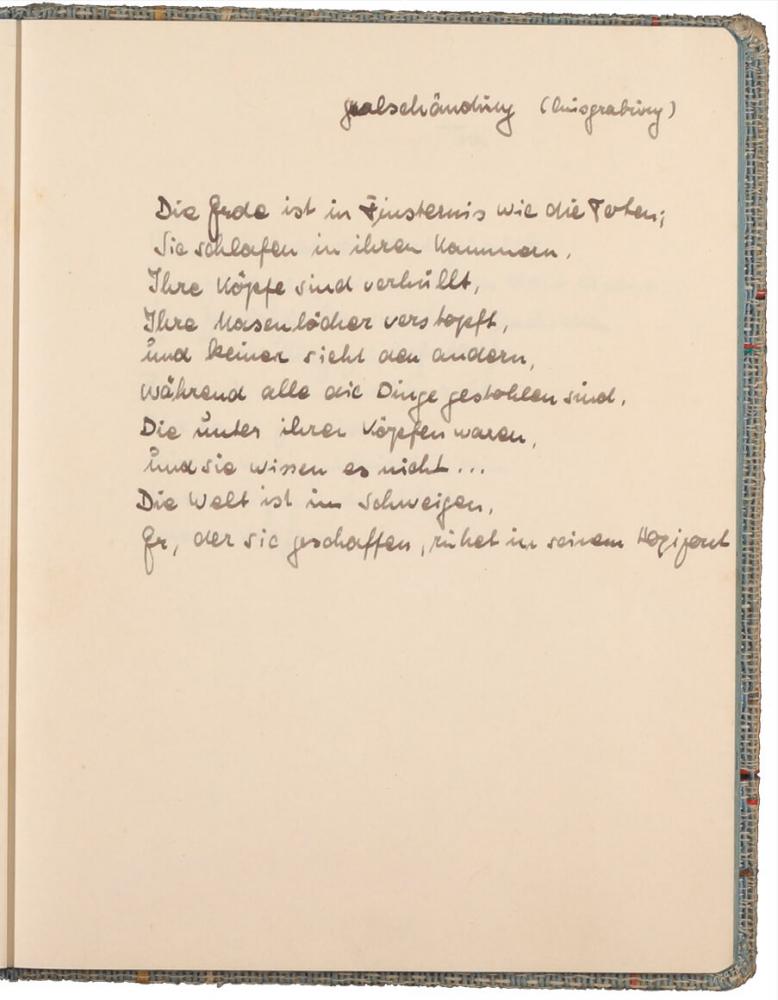 (Ausgrabung)
Die Erde ist in Finsternis wie die Toten;
Sie schlafen in ihren Kammern,
Ihre Köpfe sind verhüllt,
Ihre Nasenlöcher verstopft,
und keiner sieht den andern,
während alle die Dinge gestohlen sind,
Die unter ihren Köpfen waren,
und sie wissen es nicht...
Die Welt ist im Schweigen,
Er, der sie geschaffen, ruhet in seinem